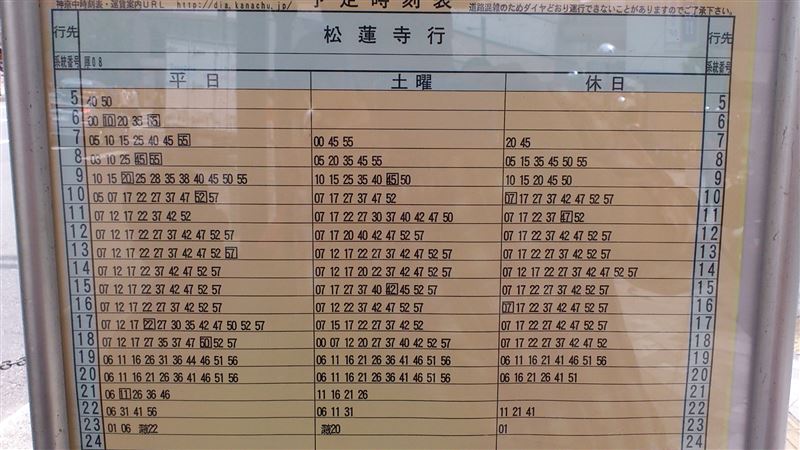 神奈中時刻表・運賃案内URL http://dia.kanachu.jp/ 予定時刻表 道路混雑のためダイヤどおり運行できないことがありますのでご了承下さい。
行先 松蓮寺行 行先
系統番号 厚08 系統番号
平日 土曜 休日
5 40 50 5
6 00 10 20 35 55 6
7 05 10 15 25 40 45 55 00 45 55 20 45 7
8 03 10 25 45 55 05 20 35 45 55 05 15 35 45 50 55 8
9 10 15 20 25 28 35 38 40 45 50 55 10 15 25 35 40 45 50 10 15 20 45 50 9
10 05 07 17 22 27 37 47 52 57 07 17 27 37 47 52 07 17 27 37 42 47 52 57 10
11 07 12 17 22 37 42 52 07 17 22 27 30 37 40 42 47 50 07 17 22 37 47 52 11
12 07 12 17 22 37 42 47 52 57 07 17 20 40 42 47 52 57 07 17 22 37 42 47 52 57 12
13 07 12 17 22 27 37 42 47 52 57 07 12 17 22 27 37 42 47 52 57 07 17 22 27 37 42 47 52 57 13
14 07 12 17 22 27 37 42 47 52 57 07 12 17 20 22 37 42 47 52 57 07 12 17 22 27 37 42 47 52 57 14
15 07 12 17 22 27 37 42 47 52 57 07 17 27 37 40 42 45 52 57 07 17 22 27 37 42 47 52 57 15
16 07 12 17 22 27 37 42 52 57 07 12 22 37 42 47 52 57 07 17 22 37 42 47 52 57 16
17 07 12 17 22 27 30 35 42 47 50 52 57 07 15 17 22 27 37 42 52 07 17 22 27 37 42 47 52 57 17
18 07 12 17 27 35 37 47 50 52 57 00 07 12 20 27 37 40 42 52 57 07 17 22 27 37 42 47 52 18
19 06 11 16 26 31 36 44 46 51 56 06 11 16 21 26 36 41 46 51 56 06 11 16 21 41 46 51 56 19
20 06 11 16 21 26 36 41 46 51 56 06 11 16 21 26 36 41 46 51 56 06 16 21 26 41 51 20
21 06 11 26 36 46 11 16 21 26 21
22 06 31 41 56 06 11 31 11 21 41 22
23 01 06 22 20 01 23
24 24